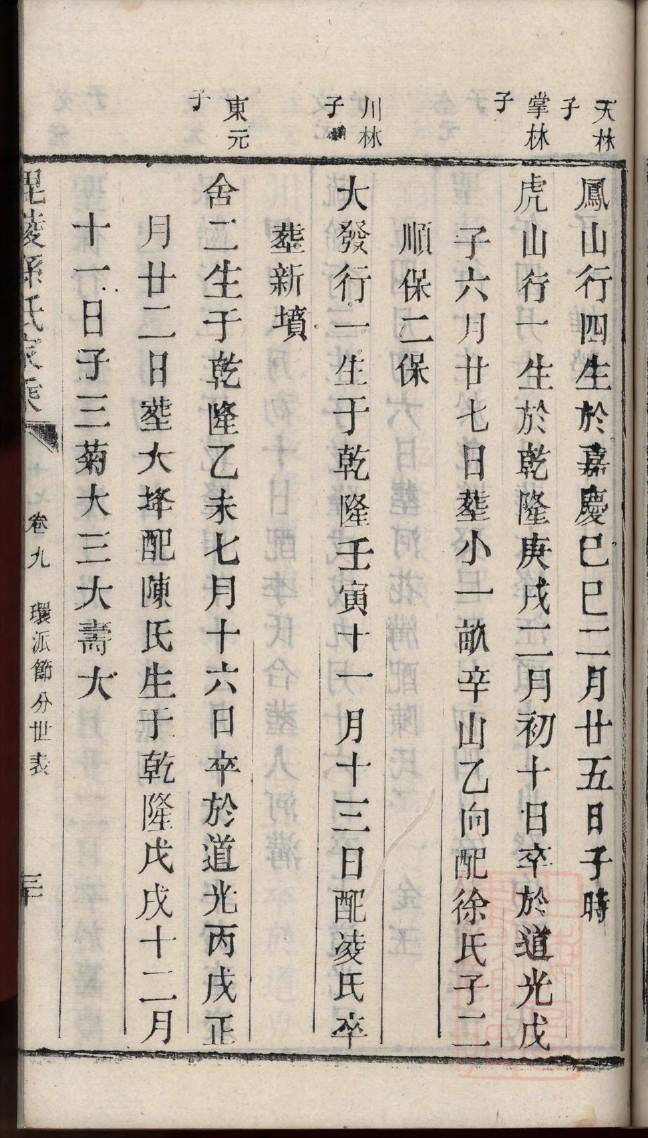 天林
子
鳳山行四生於嘉慶巳巳二月廿五日子時
掌林
子
虎山行一生於乾隆庚戌二月初十日卒於道光戊
子六月廿七日塟小一畝辛山乙向配徐氏子二
順保二保
川林
子
大發行一生于乾隆壬寅十一月十三日配凌氏卒
塟新墳
東元
子
舍二生于乾隆乙未七月十六日卒於道光丙戌正
月廿二日塟大垰配陳氏生于乾隆戊戌十二月
十一日子三菊大三大壽大
毘陵孫氏家乘
卷九
環派節分世表